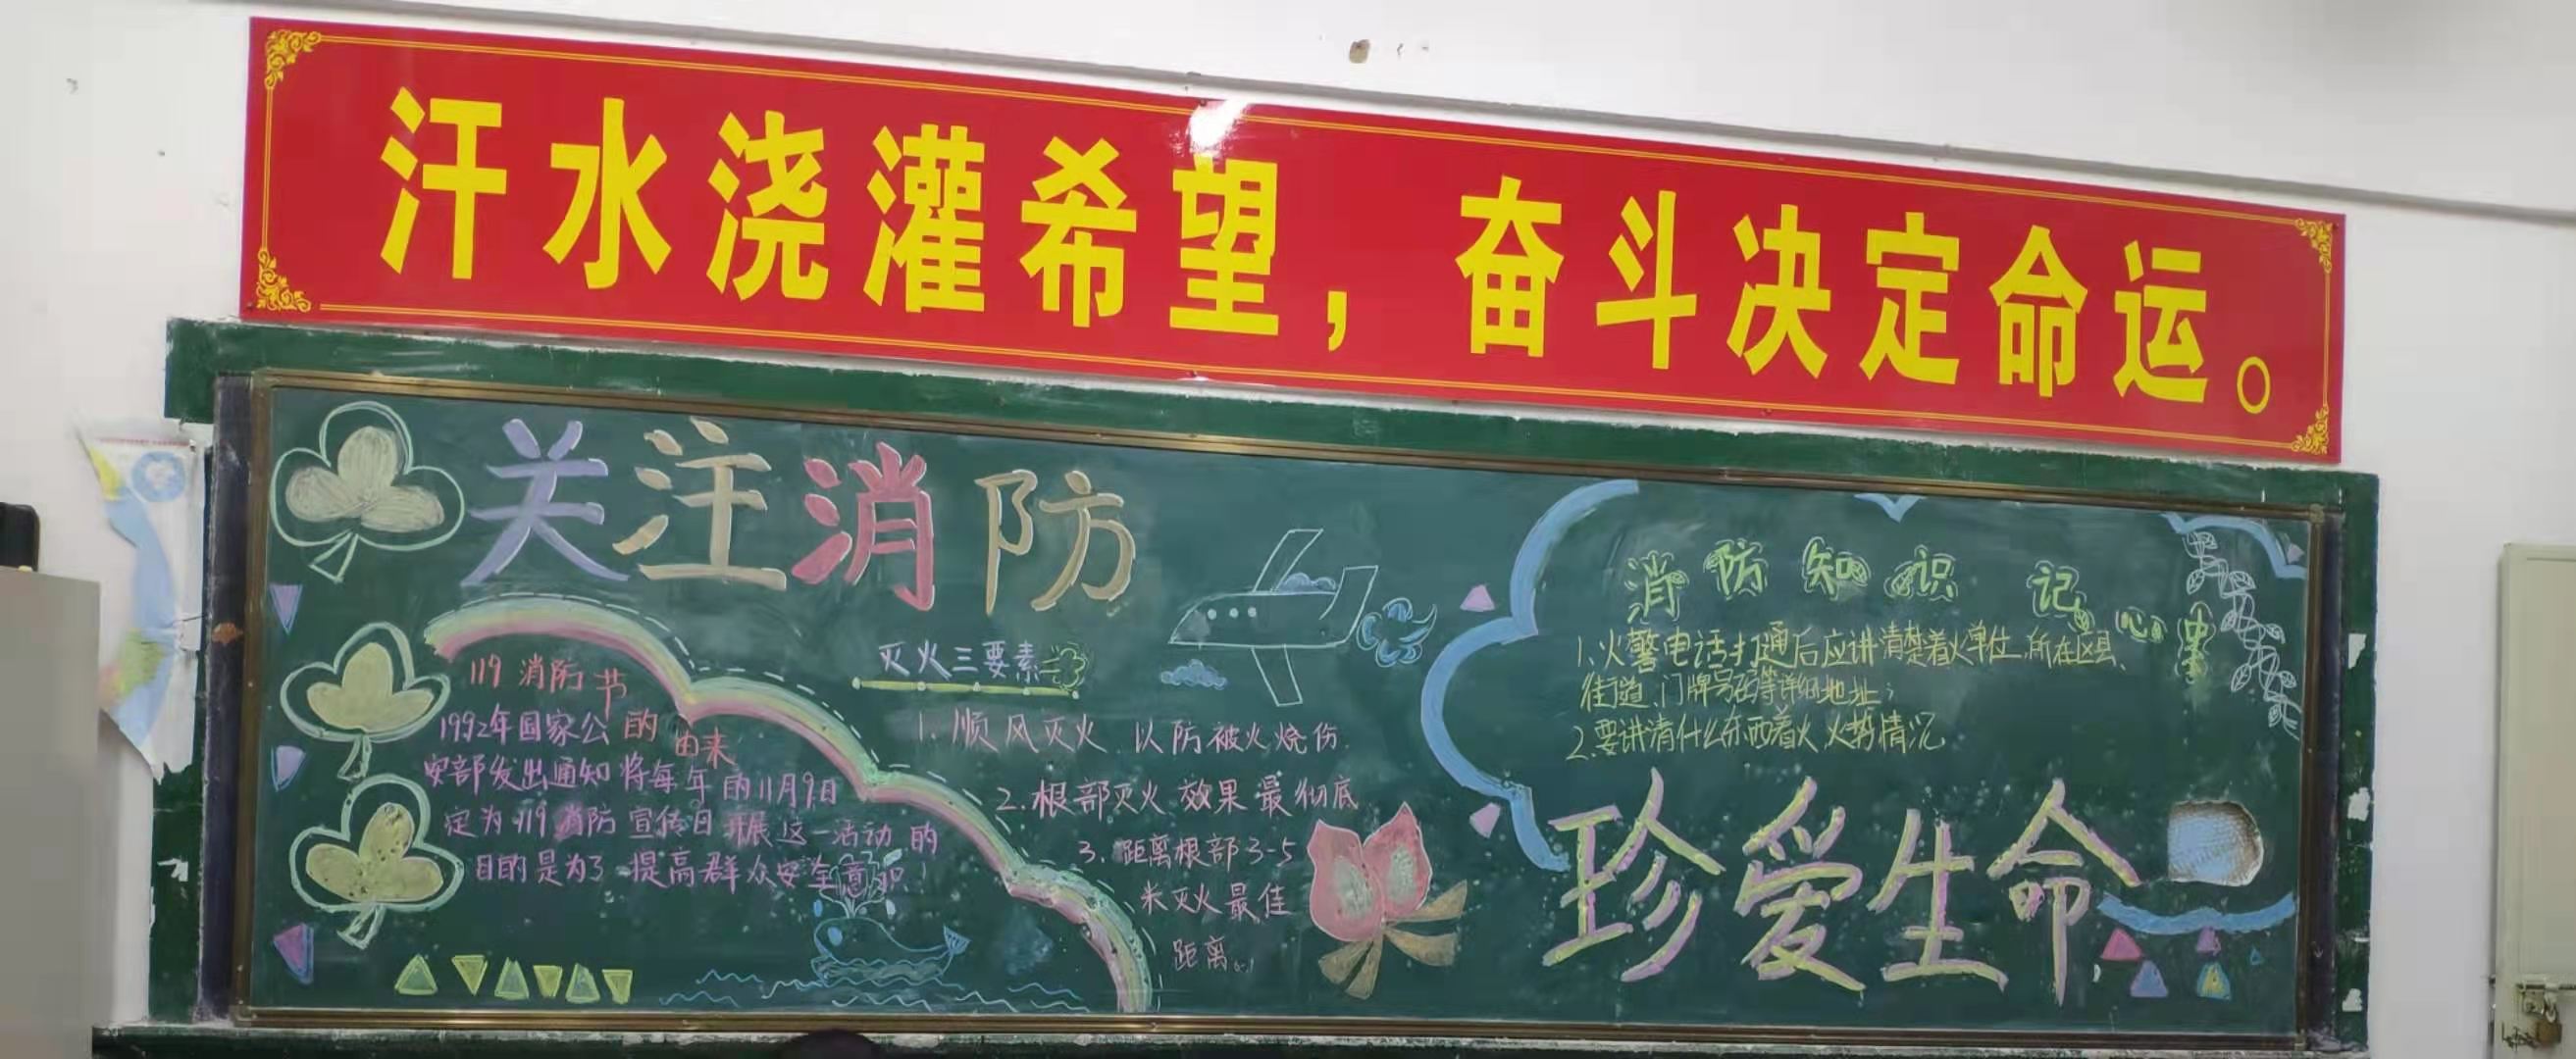 汗水浇灌希望，奋斗决定命运。
关注消防
119 消防节
的
由来
1992年国家公
安部发出通知将每年的11月9日
定为119消防宣传日开展这一活动的
目的是为了提高群众安全意识
灭火三要素
1. 顺风灭火 以防被火烧伤
2. 根部灭火 效果最彻底
3. 距离根部3-5
米灭火最佳
距离。
消防知识 记心中
1.火警电话打通后应讲清楚着火单位、所在区县、
街道、门牌号码等详细地址；
2.要讲清什么东西着火 火势情况
珍爱生命